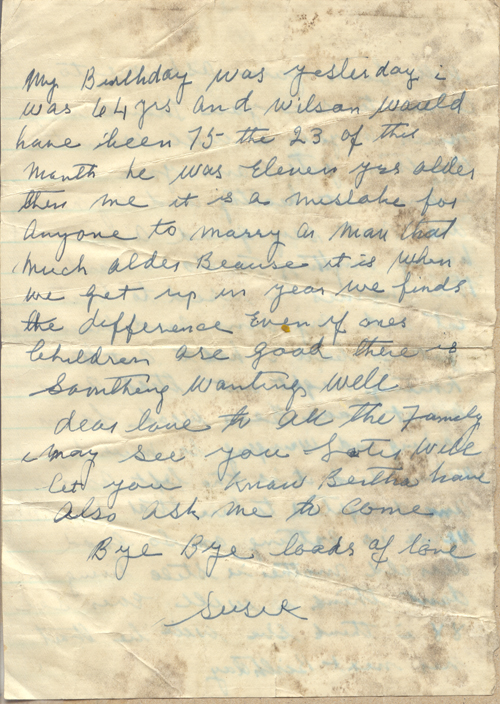 My Birthday was yesterday i
was 64 yrs and Wilson would
have been 75 the 23 of this
Month he was Eleven yrs older
then me it is a mistake for
anyone to marry a Man that
Much older Beause it is when
we get up in year we finds
the difference Even if ones
Children are good there is
Somthing wanting well
dear love to all the Family
may see you later will
let you know Bertha have
also ask me to come
Bye Bye loads of love
Susie